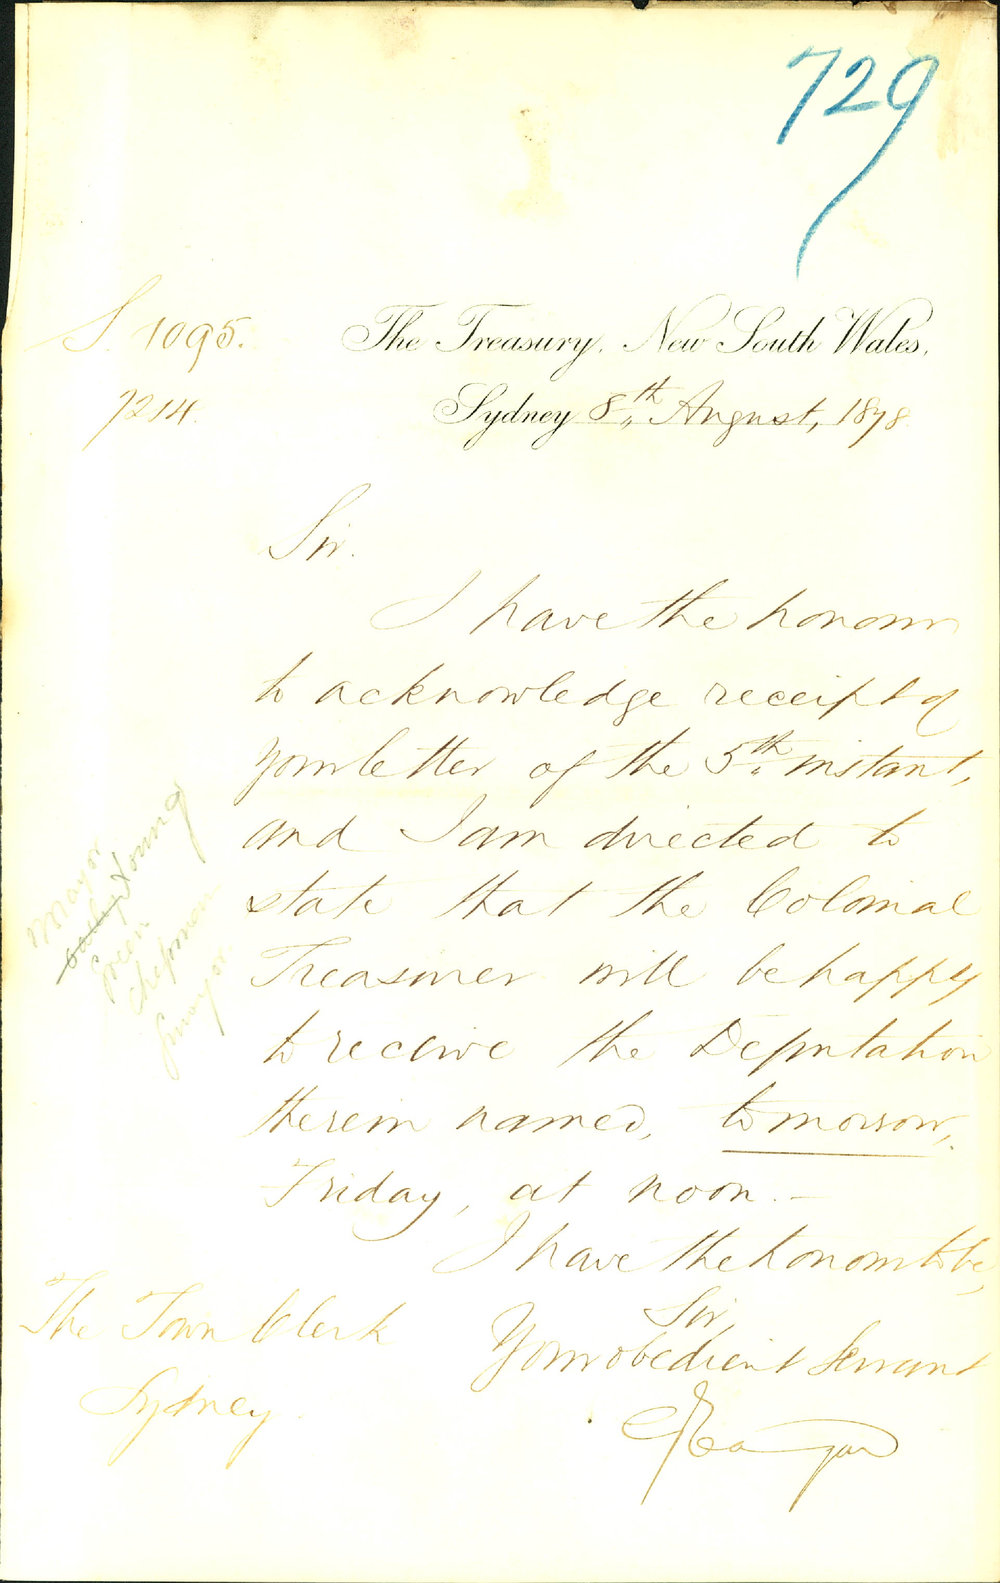 729
S. 1095.
7214.
The Treasury, New South Wales,
Sydney 8th August, 1878
Sir.
I have the honour
to acknowledge receipt of
your letter of the 5th instant,
and I am directed to
state that the Colonial
Treasurer will be happy
to receive the Deputation
therein named, tomorrow,
Friday, at noon. —
I have the honour to be,
Sir
Your obedient Servant
G Eagar
The Town Clerk
Sydney.
Mayor
Young
Green
Chapman